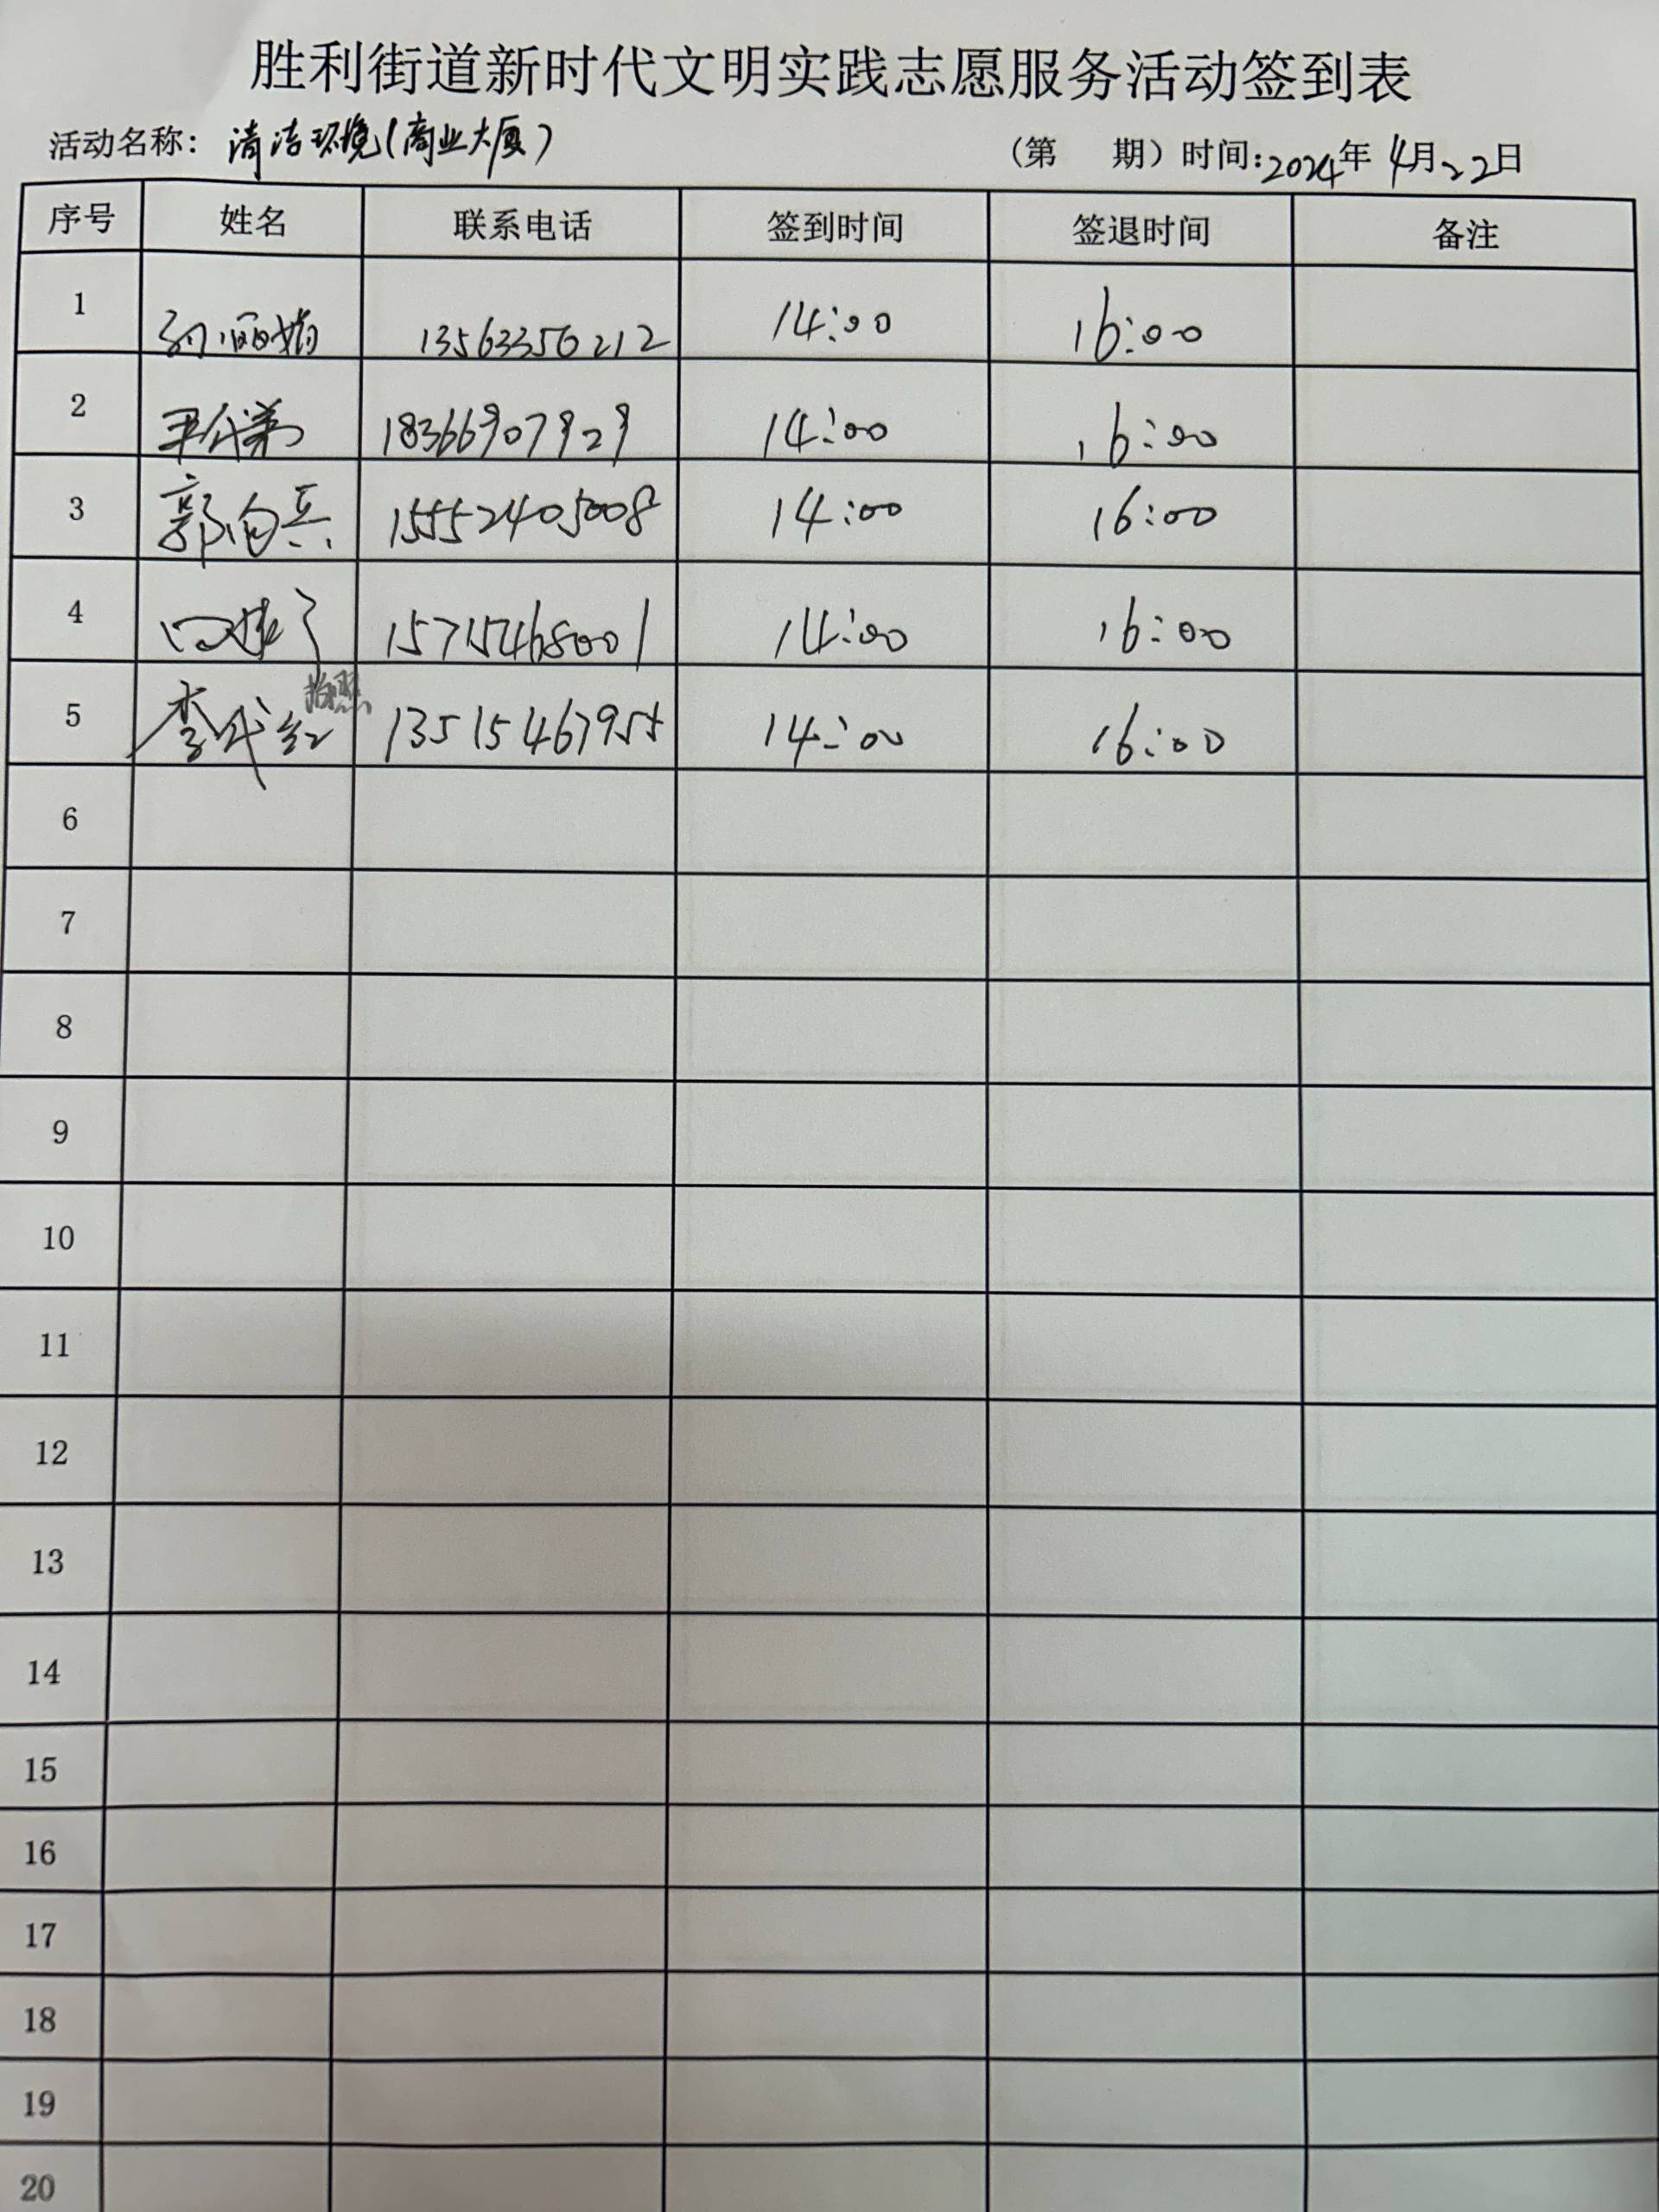 胜利街道新时代文明实践志愿服务活动签到表
活动名称：清洁环境（商业大厦）（第 期）时间：2024年4月22日
序号 姓名 联系电话 签到时间 签退时间 备注
1 13563356212 14:00 16:00
2 18366907929 14:00 16:00
3 郭向兵 15552405008 14:00 16:00
4 15715468001 14:00 16:00
拍照
5 李代红 13515467955 14:00 16:00
6
7
8
9
10
11
12
13
14
15
16
17
18
19
20